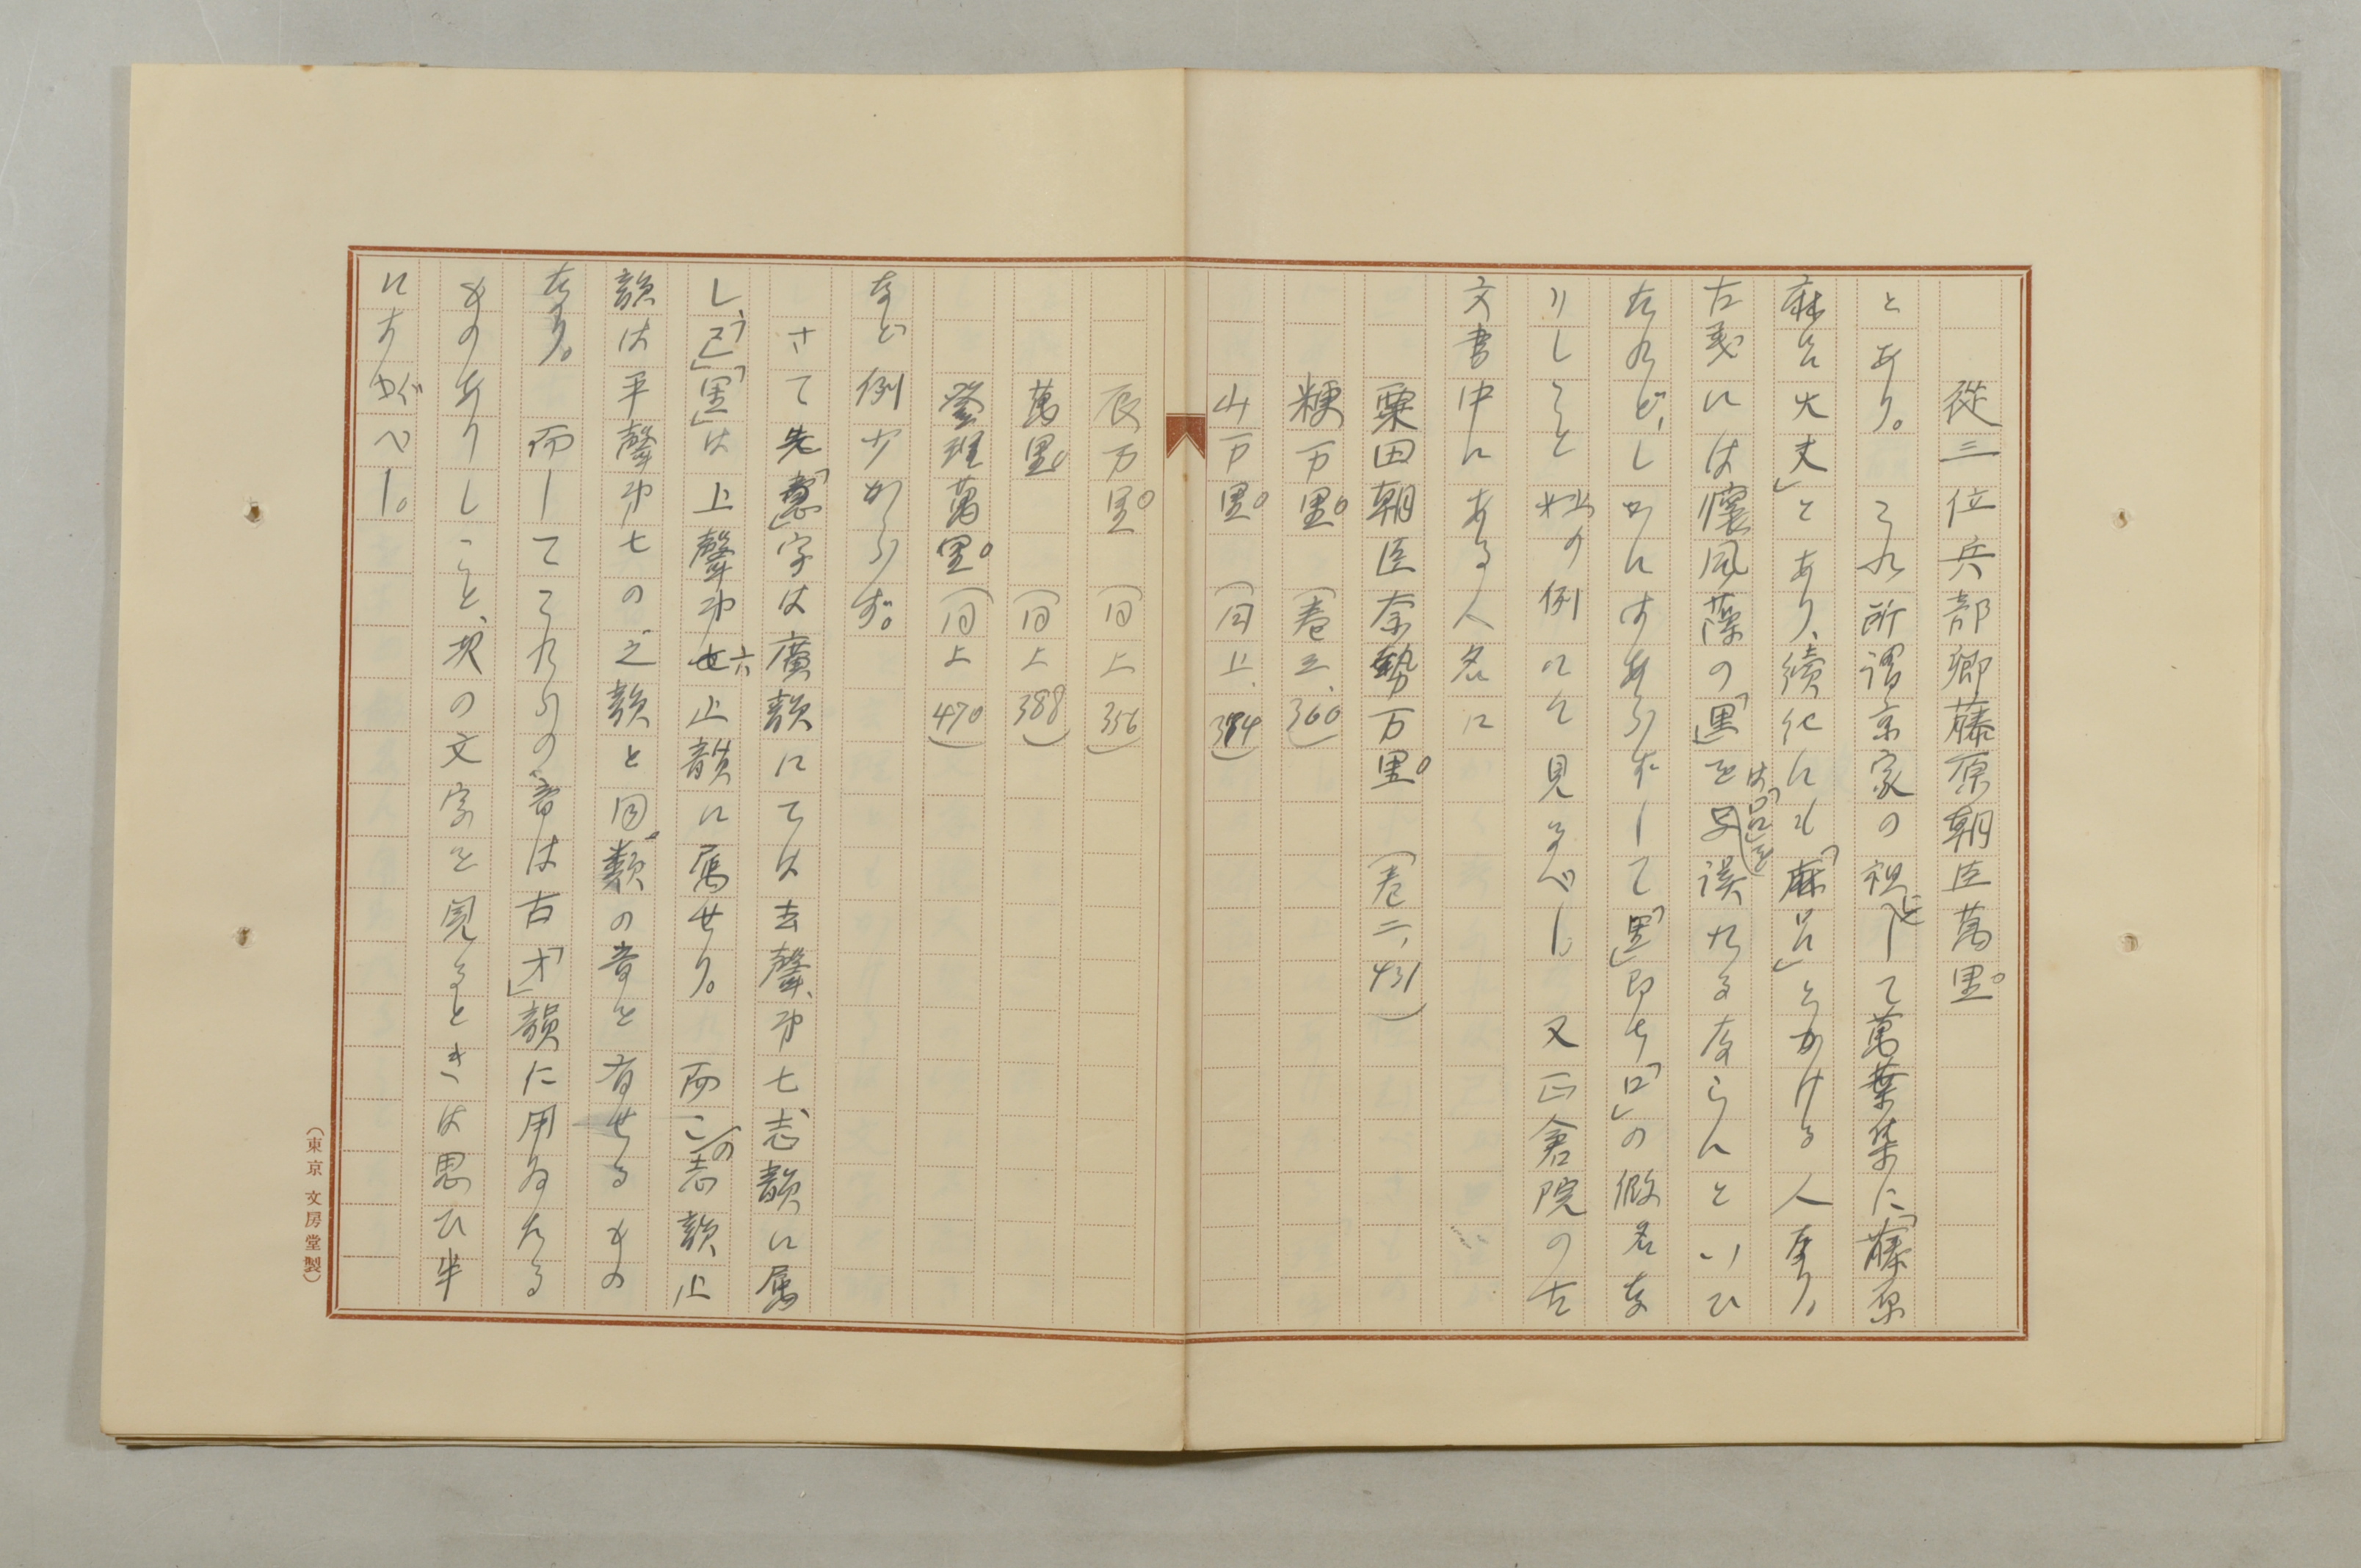 從三位兵部卿藤原朝臣萬里
とあり。これ所謂京家の祖にして萬葉集に「藤原
麻呂大丈」とあり、續紀にも「麻呂」とかける人なり。
古義には懷風藻の「里」は「呂」を誤れるならんといひ
たれど、しかにはあらずして「里」即ち「ロ」の假名な
りしこと 例にて見るべし。又正倉院の古
文書中にある人名に
粟田朝臣奈勢万里 (巻二、431)
粳万里 (巻三、360)
山万里 (同上、384)
辰万里 (同上 356)
萬里 (同上 388)
萬里 (同上 470)
など例少からず。
さて先「意」字は廣韻にては去聲、第七志韻に屬
し、「已」「里」は上聲第六止韻に屬せり。而この志韻止
韻は平聲第七の之韻と同類の音を有せるもの
なり。而してこれらの音は古「才」韻に用ゐたる
ものありしこと、次の文字を見るときは思ひ半
にすぐべし。
(東京 文房堂製)